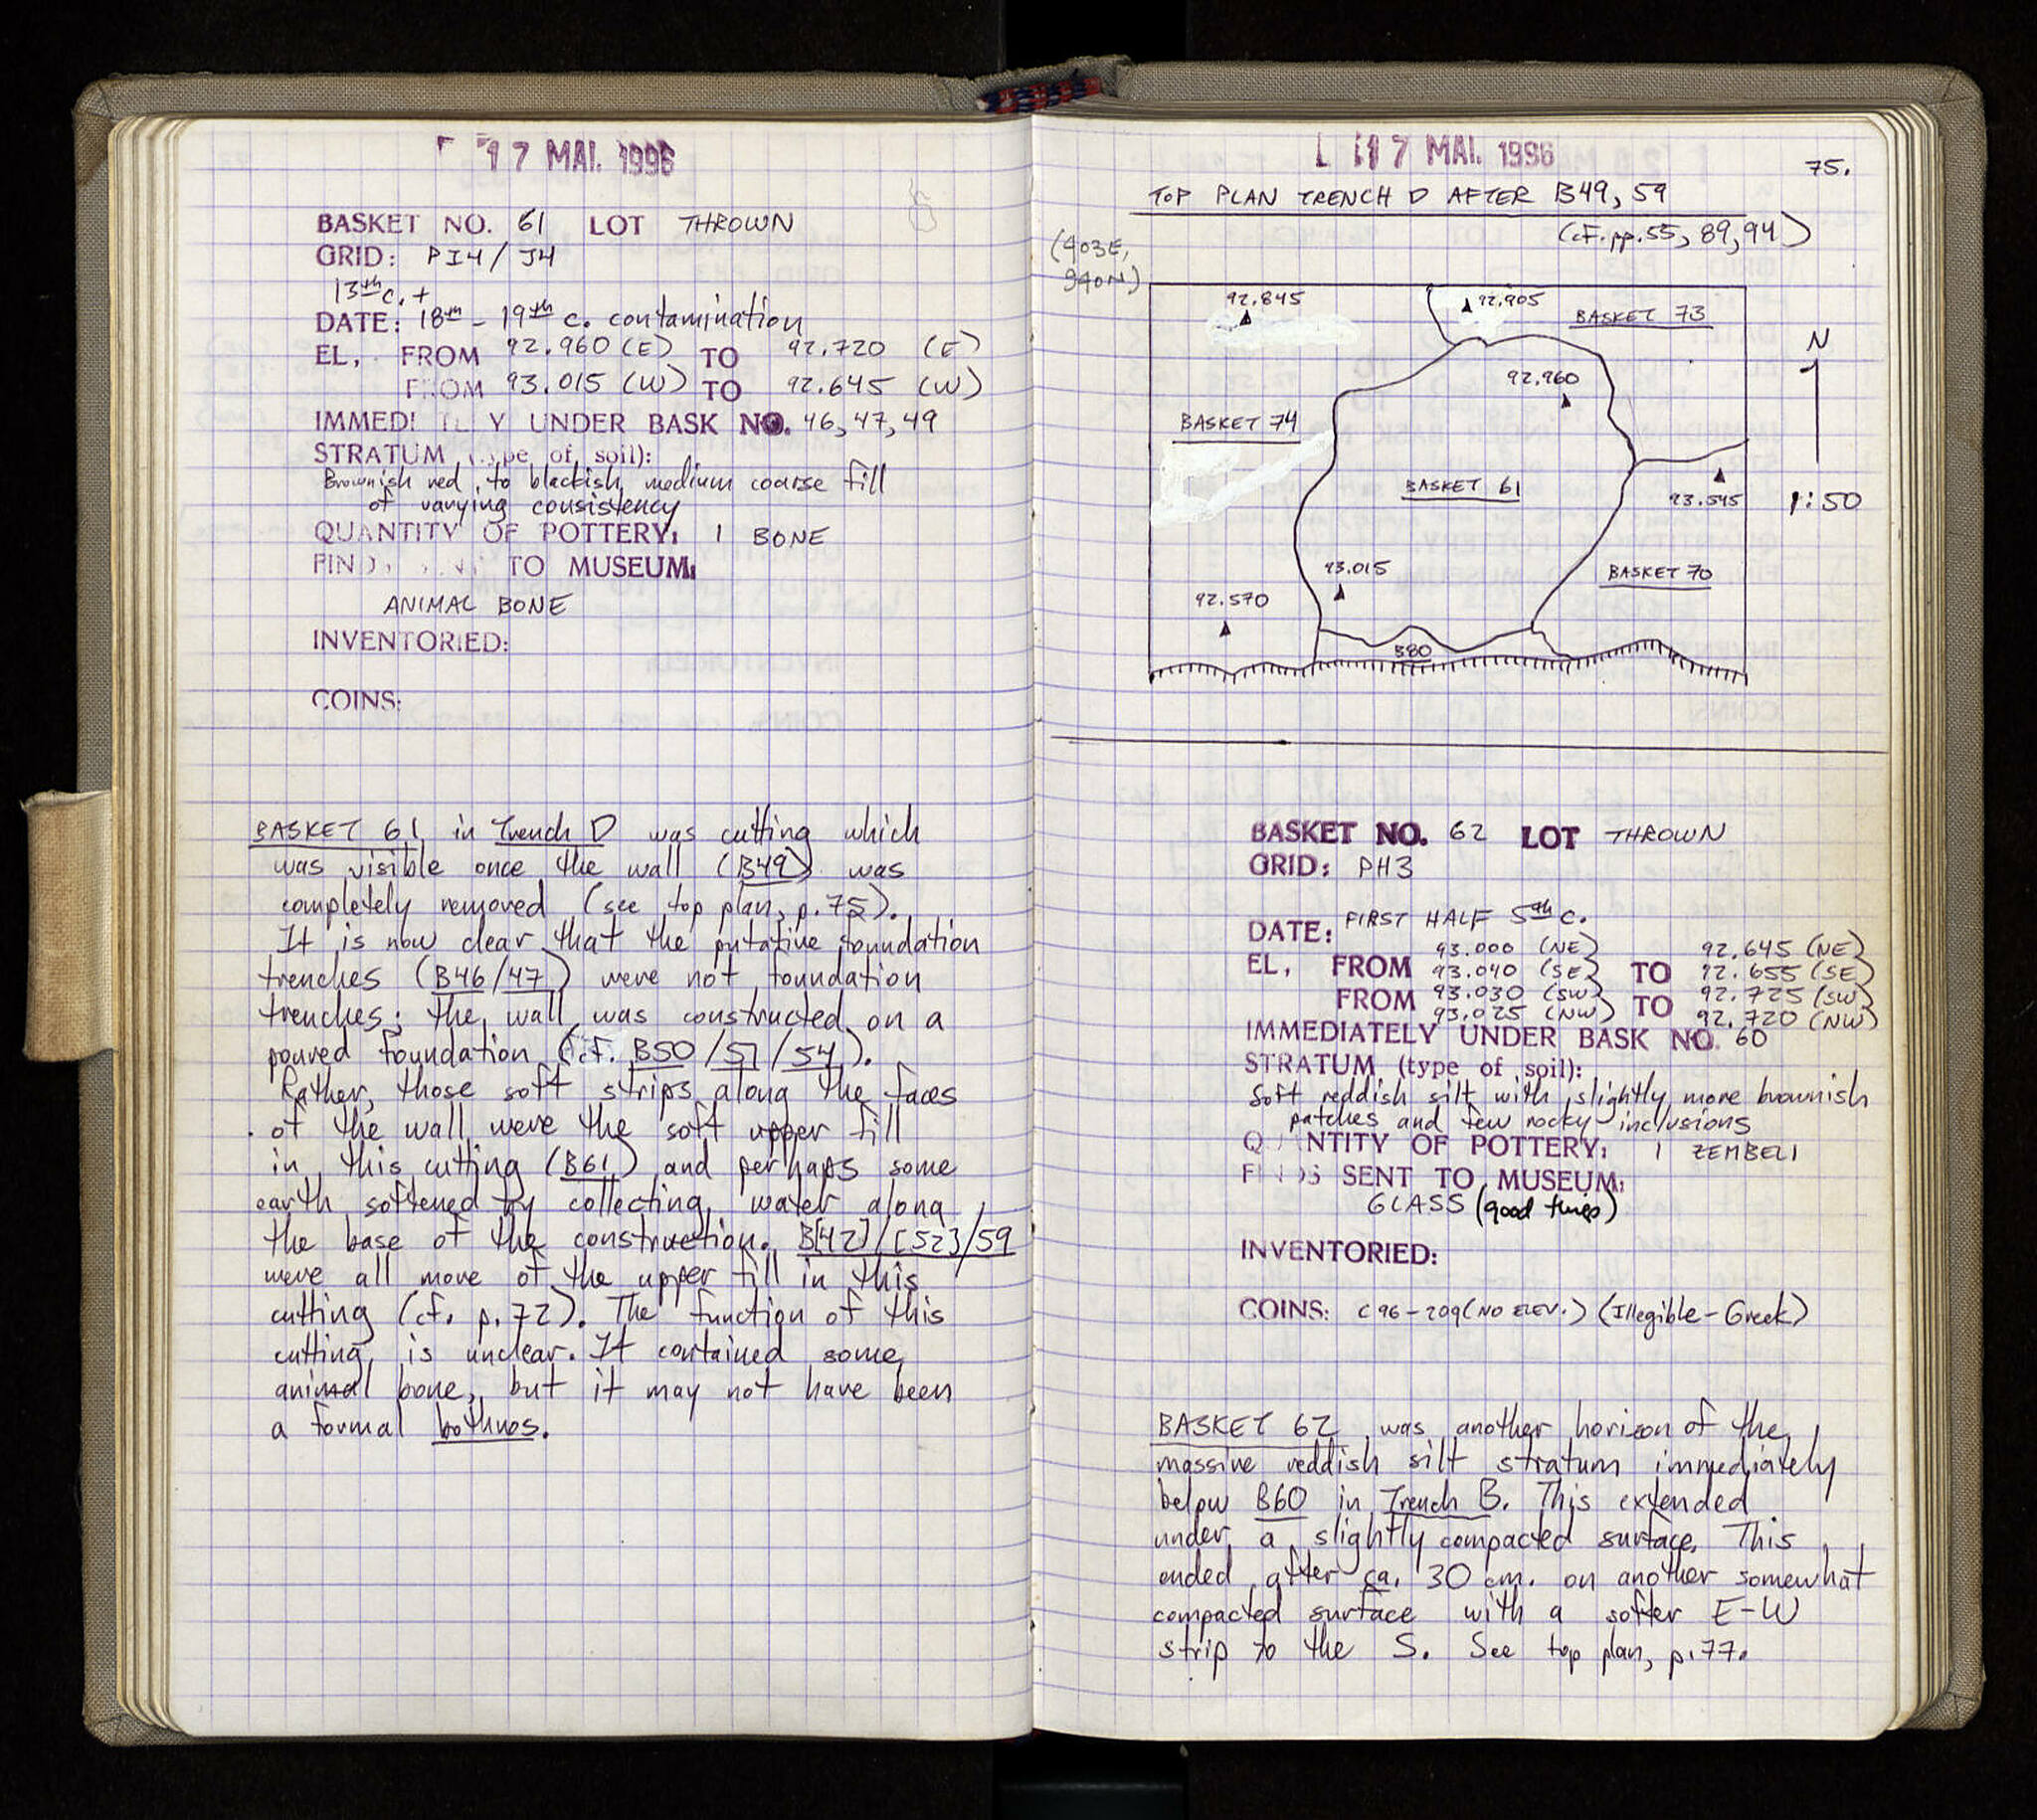 17 MAI. 1996
BASKET NO. 61 LOT THROWN
GRID: PI4/J4
13th c. +
DATE: 18th - 19th c. contamination
EL, FROM 92.960 (E) TO 92.720 (E)
FROM 93.015 (W) TO 92.645 (W)
IMMEDI Y UNDER BASK NO. 46, 47, 49
STRATUM (type of soil):
Brownish red to blackish medium coarse fill
of varying consistency
QUANTITY OF POTTERY: 1 BONE
FINDS SENT TO MUSEUM:
ANIMAL BONE
INVENTORIED:
COINS:
BASKET 61 in Trench D was cutting which
was visible once the wall (B49) was
completely removed (see top plan, p. 75).
It is now clear that the putative foundation
trenches (B46/47) were not foundation
trenches; the wall was constructed on a
poured foundation (cf. B50/51/54).
Rather, those soft strips along the faces
of the wall were the soft upper fill
in this cutting (B61) and perhaps some
earth softened by collecting water along
the base of the construction. B[42]/[52]/59
were all more of the upper fill in this
cutting (cf. p. 72). The function of this
cutting is unclear. It contained some
animal bone, but it may not have been
a formal bothros.
17 MAI. 1996
75.
TOP PLAN TRENCH D AFTER B49, 59
(cf. pp. 55, 89, 94)
(403E,
940N)
92.845
92.905
BASKET 73
N
92.960
BASKET 74
BASKET 61
93.545
1:50
93.015
BASKET 70
92.570
B80
BASKET NO. 62 LOT THROWN
GRID: PH3
DATE: FIRST HALF 5th c.
93.000 (NE) 92.645 (NE)
EL, FROM 93.040 (SE) TO 92.655 (SE)
FROM 93.030 (SW) TO 92.725 (SW)
93.025 (NW) 92.720 (NW)
IMMEDIATELY UNDER BASK NO. 60
STRATUM (type of soil):
Soft reddish silt with slightly more brownish
patches and few rocky inclusions
QUANTITY OF POTTERY: 1 ZEMBELI
FINDS SENT TO MUSEUM:
GLASS (good things)
INVENTORIED:
COINS: C96-209 (NO ELEV.) (Illegible-Greek)
BASKET 62 was another horizon of the
massive reddish silt stratum immediately
below B60 in Trench B. This extended
under a slightly compacted surface. This
ended after ca. 30 cm. on another somewhat
compacted surface with a softer E-W
strip to the S. See top plan, p. 77.